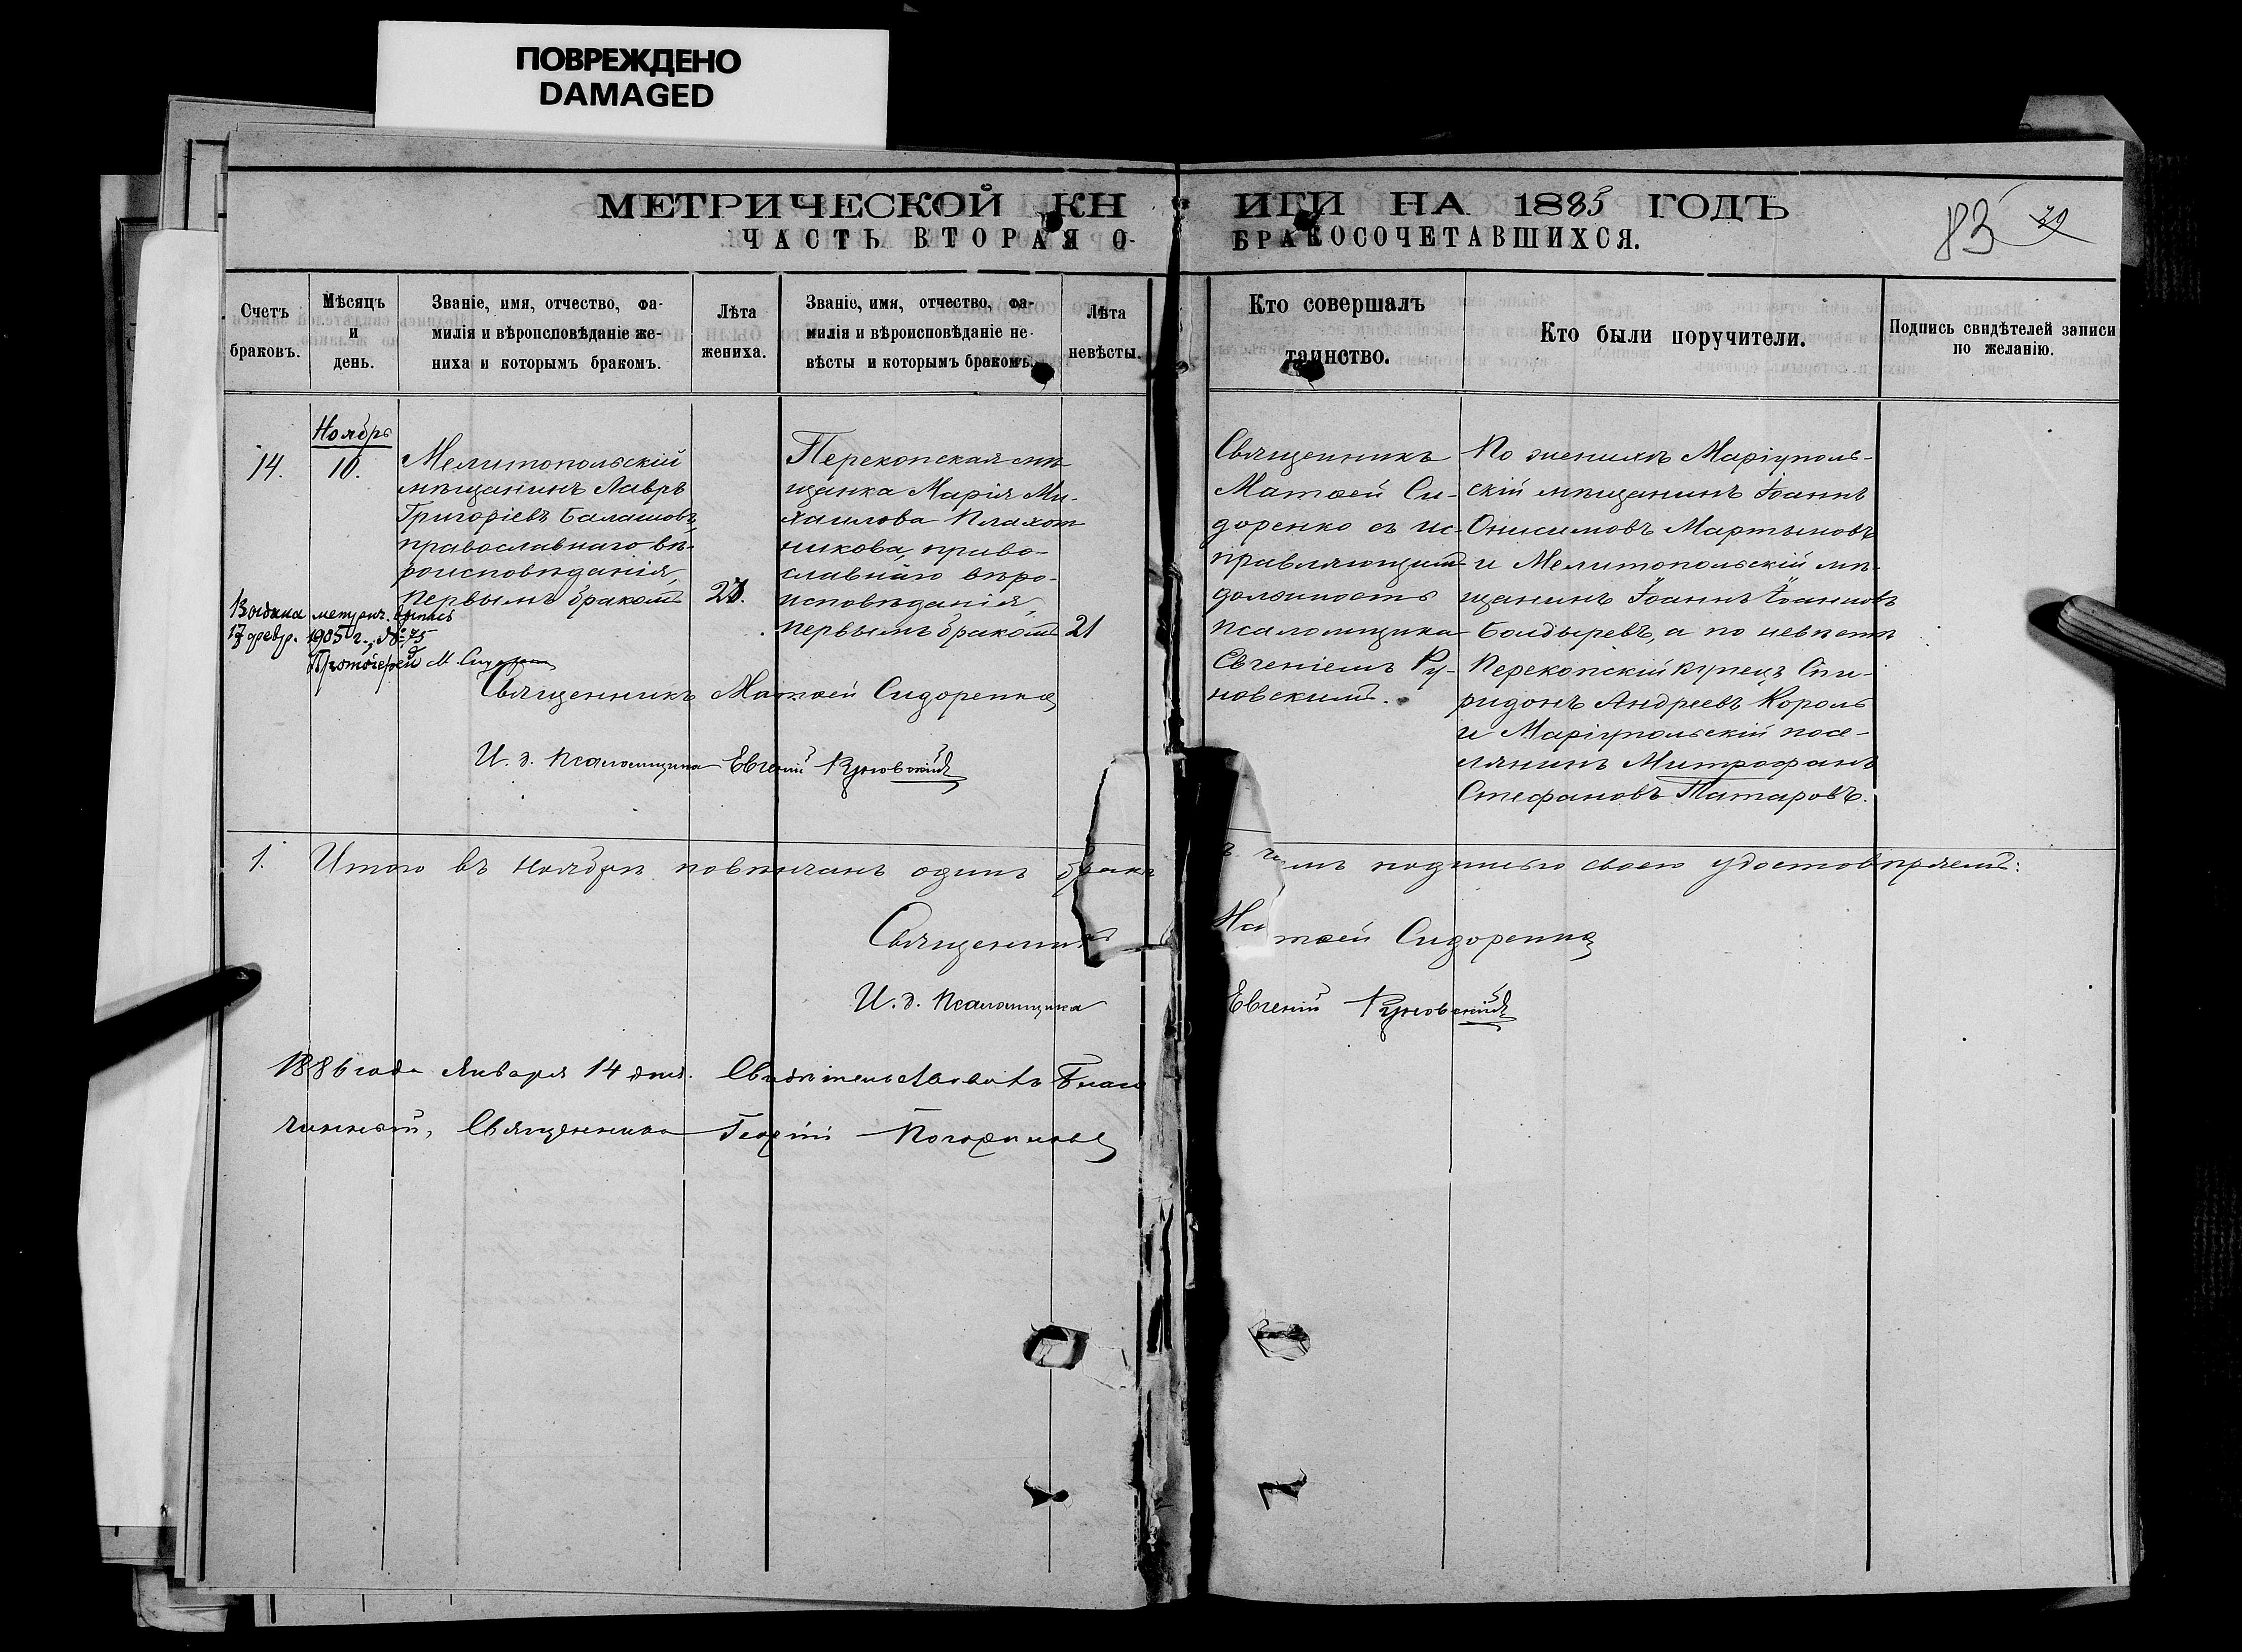 ПОВРЕЖДЕНО
DAMAGED
МЕТРИЧЕСКОЙ КНИГИ НА 1885 ГОДЪ
ЧАСТЬ ВТОРАЯ О БРАКОСОЧЕТАВШИХСЯ.
83
Счетъ
браковъ.
Мѣсяцъ
и
день.
Званіе, имя, отчество, фа-
милія и вѣроисповѣданіе же-
ниха и которымъ бракомъ.
Лѣта
жениха.
Званіе, имя, отчество, фа-
милія и вѣроисповѣданіе не-
вѣсты и которымъ бракомъ.
Лѣта
невѣсты.
Кто совершалъ
таинство.
Кто были поручители.
Подпись свидѣтелей записи
по желанію.
14.
Ноябрь
10.
Мелитопольскій
мѣщанинъ Лавръ
Григоріевъ Балашовъ,
православнаго вѣ-
роисповѣданія,
первымъ бракомъ
23.
Перекопская мѣ
щанка Марія Ми-
хаилова Плахот
никова, право-
славнаго вѣро-
исповѣданія,
первымъ бракомъ
21
Священникъ
Матѳей Си-
доренко съ ис-
правляющимъ
должность
псаломщика
Евгеніемъ Ру-
новскимъ.
По женихѣ Маріуполь-
скій мѣщанинъ Іоаннъ
Онисимовъ Мартыновъ
и Мелитопольскій мѣ-
щанинъ Іоаннъ Іоанновъ
Болдыревъ, а по невѣстѣ
Перекопскій купецъ Спи-
ридонъ Андреевъ Король
и Маріупольскій посе-
лянинъ Митрофанъ
Стефановъ Татаровъ.
Выдана метрич. выпись
17 февр. 1905 г., № 75
Протоіерей М. Сидоренко
Священникъ Матѳей Сидоренко
И. д. псаломщика Евгеній Руновскій
1. Итого въ ноябрѣ повѣнчанъ одинъ бракъ
въ чемъ подписью своею удостовѣряемъ:
Священникъ Матѳей Сидоренко
И. д. псаломщика Евгеній Руновскій
1886 года Января 14 дня. Свидѣтельствовалъ Благо
чинный, Священникъ Георгій